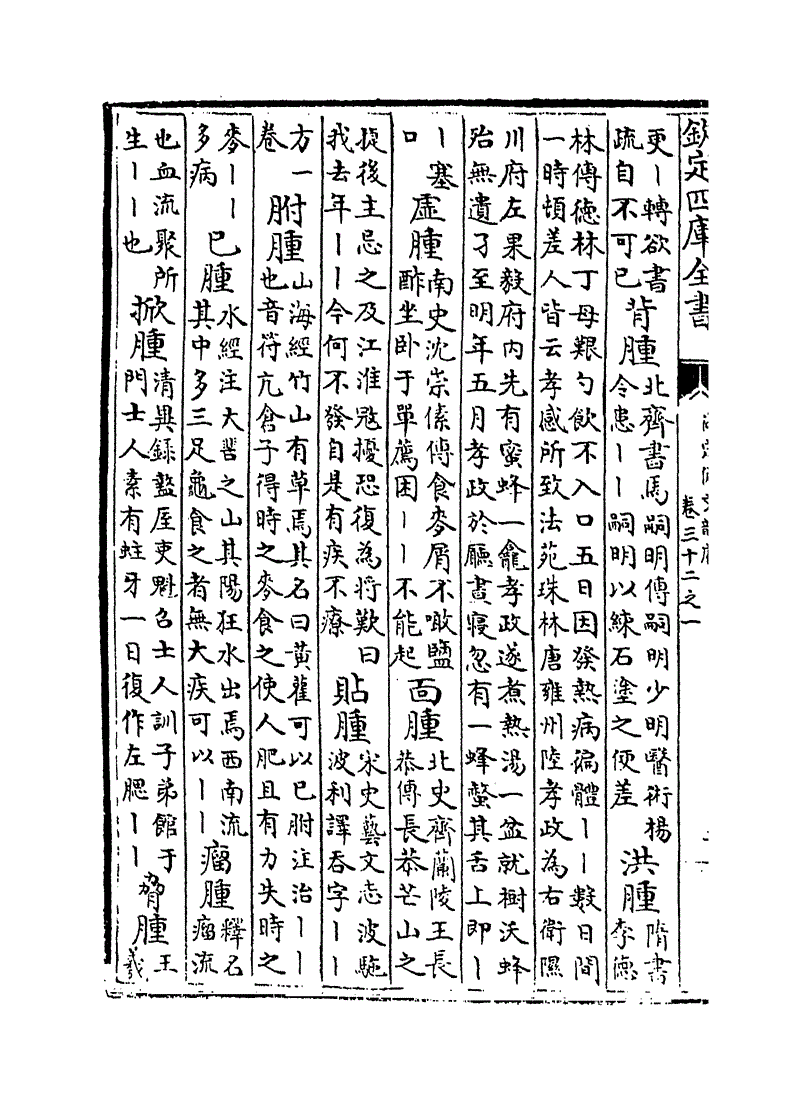 欽定四庫全書
卷三十二之一
更丨轉欲書疏自不可已 背腫 北齊書馬嗣明傳嗣明少明醫術楊令患丨丨嗣明以練石塗之便差 洪腫 隋書李德
林傳德林丁母艱勺飲不入口五日因發熱病徧體丨丨數日間一時頓差人皆云孝感所致法苑珠林唐雍州陸孝政為右衛隰
川府左果毅府内先有蜜蜂一龕孝政遂煮熱湯一盆就樹沃蜂殆無遺孑至明年五月孝政於廳晝寢忽有一蜂螫其舌上即丨
丨塞口 虛腫 南史沈崇傃傳食麥屑不噉鹽酢坐卧于單薦困丨丨不能起 面腫 北史齊蘭陵王長恭傳長恭芒山之
捷後主忌之及江淮冦擾恐復為將歎曰我去年丨丨今何不發自是有疾不療 貼腫 宋史藝文志波駞波利譯吞字丨丨
方一卷 胕腫 山海經竹山有草焉其名曰黃雚可以已胕注治丨丨也音符亢倉子得時之麥食之使人肥且有力失時之
麥丨丨多病 已腫 水經注大𩇕之山其陽狂水出焉西南流其中多三足龜食之者無大疾可以丨丨 瘤腫 釋名瘤流
也血流聚所生丨丨也 掀腫 清異錄盩厔吏魁召士人訓子弟館于門士人素有蛀牙一日復作左腮丨丨 脅腫 王羲